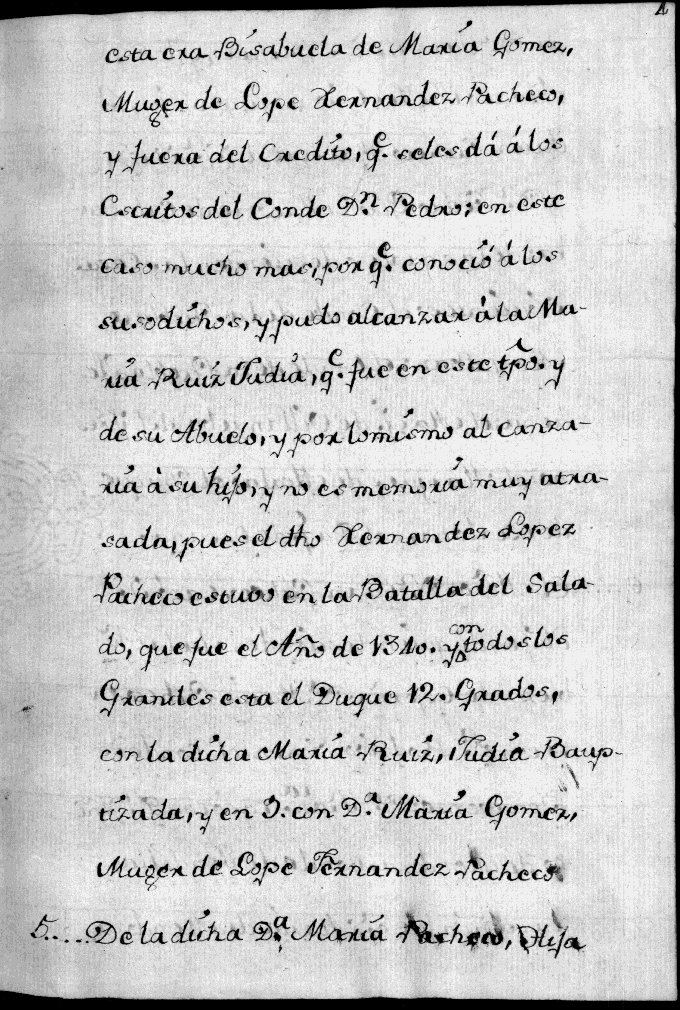 esta era Bisabuela de María Gomez,
Muger de Lope Hernandez Pacheco,
y fuera del Credito, q.e seles dá á los
Escritos del Conde D.n Pedro; en este
caso mucho mas, por q.e conoció á los
susodichos, y pudo alcanzar á la Ma-
ria Ruiz Judia, q.e fue en este tpo. y
de su Abuelo, y por lo mismo alcanza-
ria à su hijo, y no es memoria muy atra-
sada, pues el dho Hernandez Lopez
Pacheco estuvo en la Batalla del Sala-
do, que fue el Año de 1340. y con todos los
Grandes esta el Duque 12. Grados,
con la dicha María Ruiz, Judia Baup-
tizada, y en 9. con D.a María Gomez,
Muger de Lope Fernandez Pacheco
5.... De la dicha D.a María Pacheco, Hija